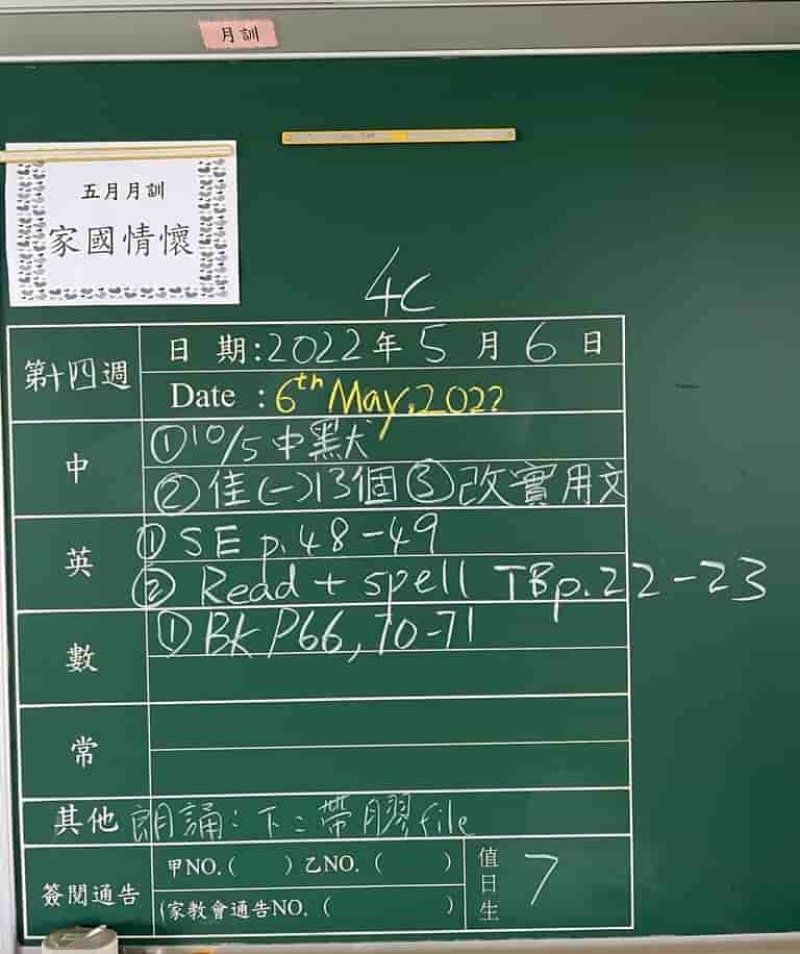 月訓
五月月訓
家國情懷
4C
第十四週
日 期:2022年5月6日
Date : 6th May,2022
中
①10/5中默
②佳(一)13個③改實用文
英
①SE p.48-49
② Read + spell TBp.22-23
數
①BK P66,70-71
常
其他 朗誦:下:帶膠file
簽閱通告
甲NO.( )乙NO.( )
(家教會通告NO.( )
值日生
7